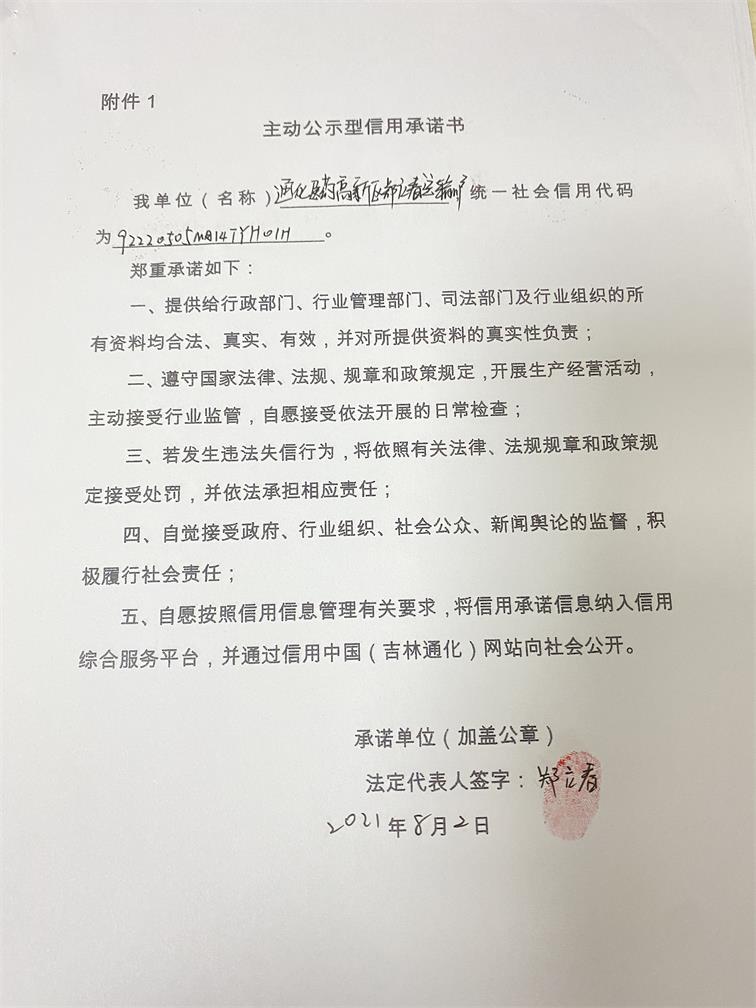 附件 1
主动公示型信用承诺书
我单位（名称）通化医药高新区郑立春运输户统一社会信用代码
为92220505MA14TYH01H。
郑重承诺如下：
一、提供给行政部门、行业管理部门、司法部门及行业组织的所
有资料均合法、真实、有效，并对所提供资料的真实性负责；
二、遵守国家法律、法规、规章和政策规定，开展生产经营活动，
主动接受行业监管，自愿接受依法开展的日常检查；
三、若发生违法失信行为，将依照有关法律、法规规章和政策规
定接受处罚，并依法承担相应责任；
四、自觉接受政府、行业组织、社会公众、新闻舆论的监督，积
极履行社会责任；
五、自愿按照信用信息管理有关要求，将信用承诺信息纳入信用
综合服务平台，并通过信用中国（吉林通化）网站向社会公开。
承诺单位（加盖公章）
法定代表人签字：郑立春
2021年8月2日